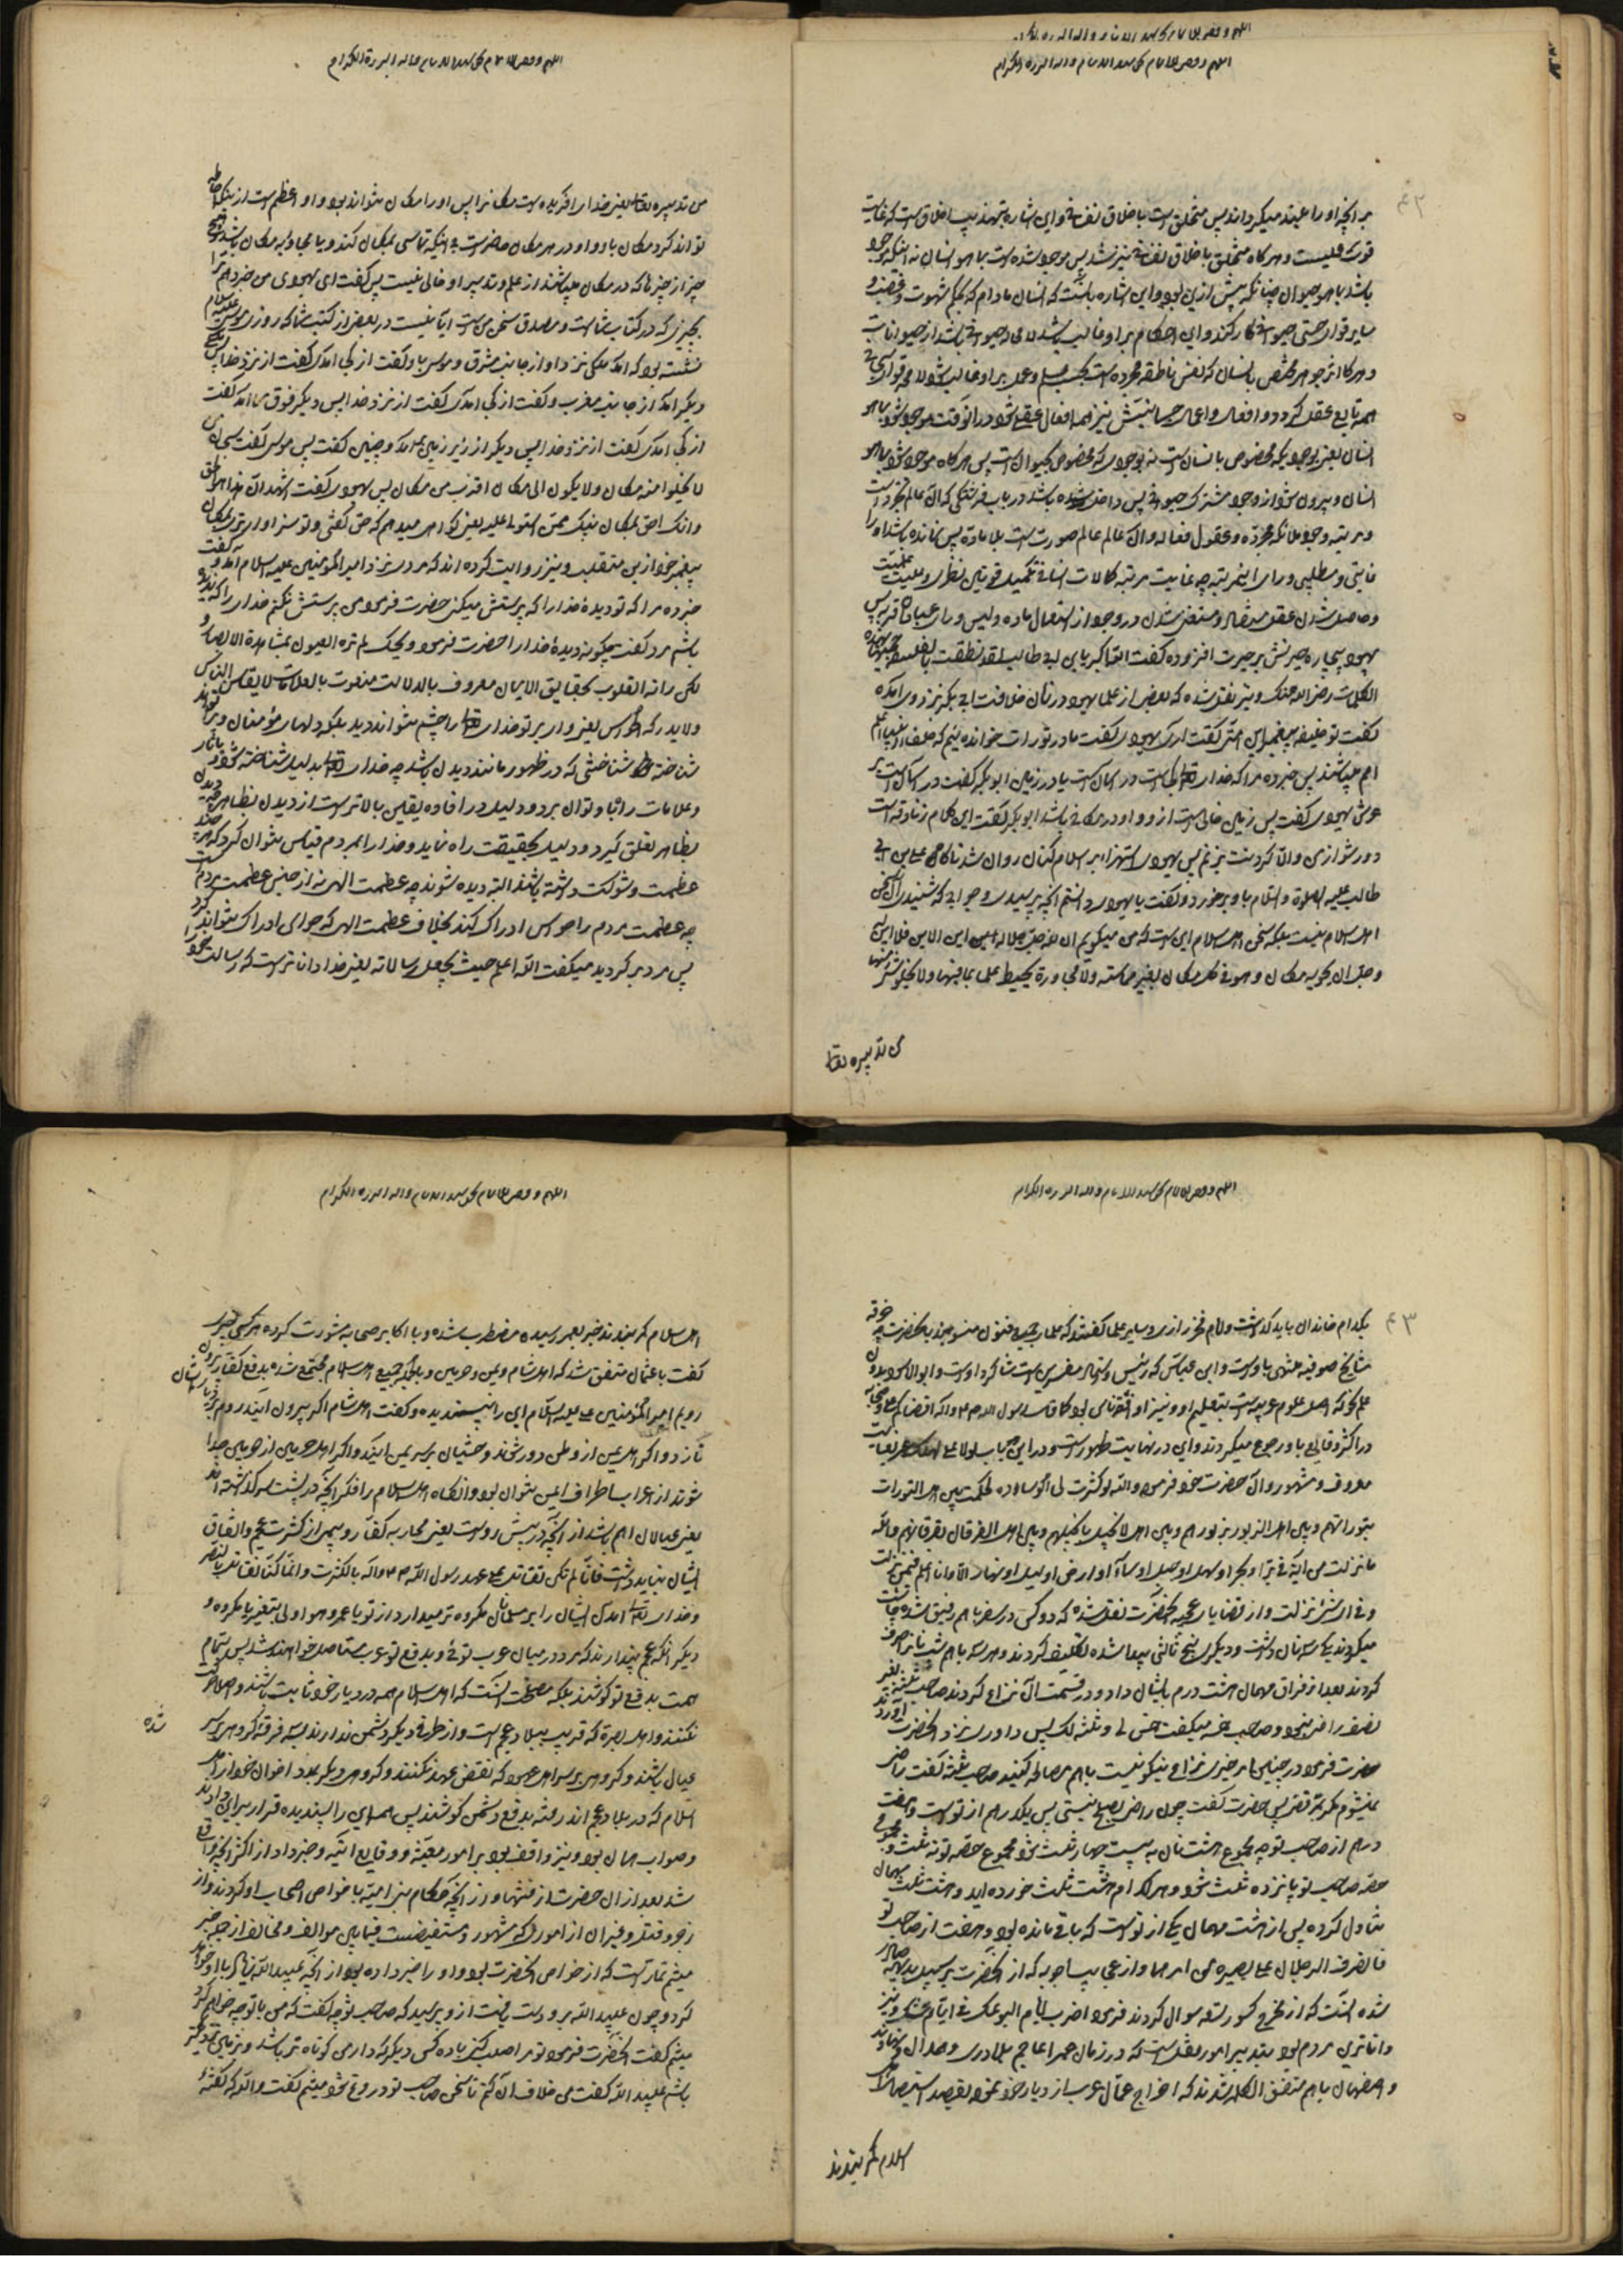 بر آنچه او را عبید میگرداند پس متخلق است باخلاق نفسانی و این اشاره بتهذیب اخلاق است که غایت
قوت عملیست و هر گاه متخلق باخلاق نفسانی نیز شد پس موجود شده است بما هو انسان نه اینکه موجود
باشد بما هو حیوان چنانکه پیش ازین بود و این اشاره بآنست که انسان مادام که بحکم شهوت و غضب و
سایر قوای حسی حیوانی کار کند و این احکام بر او غالب باشد لا محاله حیوانی باشد از حیوانات
و هر گاه اثر جوهر مختص بانسان که نفس ناطقه مجرده است بحسب علم و عمل بر او غالب شود لا محاله قوای حیوانی
همه تابع عقل گردد و افعال و اعمال جسمانیش نیز همه افعال عقلی شود در آنوقت موجود شود بما هو
انسان یعنی بوجودیکه مخصوص بانسان است نه بوجودی که مخصوص بحیوان است پس هر گاه موجود شود بما هو
انسان و بیرون شود از وجود مشترک حیوانی پس داخل شده باشد در باب فرشتگی که آن عالم تجرد است
و مرتبه وجود ملائکه مجرده و عقول فعاله و آن عالم عالم صورت است بلا ماده پس نمانده باشد او را
غایتی و مطلبی ورای این مرتبه چه غایت مرتبه کمالات انسانی تکمیل قوتین نظری و عملیست
و حاصل شدن عقل مستفاد و مستغنی شدن در وجود از استعمال ماده و لیس وراء عبادان قریة پس
یهود بیچاره حیرتش بر حیرت افزوده گفت الله اکبر یا بن ابی طالب لقد نطقت بالفلسفة جمیعها بهذه
الکلمات رضی الله عنک و نیز نقل شده که بعضی از علماء یهود در زمان خلافت ابی بکر نزد وی آمده
گفت تو خلیفه پیغمبر این امتی گفت آری یهودی گفت ما در تورات خوانده‌ایم که خلفاء انبیا اعلم
امم میباشند پس خبر ده مرا که خدای تعالی کجاست در آسمان است یا در زمین ابو بکر گفت در آسمان است بر
عرش یهودی گفت پس زمین خالی است از او و او در مکانی باشد ابو بکر گفت این کلام زنادقه است
دور شو از من و الا گردنت بزنم پس یهودی استهزاء بر اسلام کنان روان شد ناگاه علی بن ابی
طالب علیه الصلوة و السلام باو برخورد و گفت یا یهودی دانستم آنچه پرسیدی و جوابی که شنیدی آن سخن
اهل اسلام نیست بلکه سخن اهل اسلام این است که من میگویم ان الله جل جلاله این الاین فلا این له
و جل ان یحویه مکان و هو فی کل مکان بغیر مماسة و لا مجاورة یحیط علما بما فیها و لا یخلو شیء منها
من تدبیره تعالی
من تدبیره تعالی یعنی خدای آفریده است مکان را پس او را مکان نتواند بود و او اعظم است از اینکه احاطه
تواند کرد مکان باو و او در هر مکان حاضر است بی آنکه تماسی بمکان کند و یا مجاور مکان باشد و هیچ
چیز از چیزها که در مکان میباشند از علم و تدبیر او خالی نیست پس گفت ای یهودی من خبر دهم ترا
بچیزی که در کتاب شماست و مصدق سخن من است آیا نیست در بعضی از کتب شما که روزی موسی علیه السلام
نشسته بود که آمد ملکی نزد او از جانب مشرق و موسی باو گفت از کجا آمدی گفت از نزد خدا پس
دیگر آمد از جانب مغرب و گفت از کجا آمدی گفت از نزد خدا پس دیگر فوق سما آمد گفت
از کجا آمدی گفت از نزد خدا پس دیگر از زیر زمین آمد و چنین گفت پس موسی گفت سبحان من
لا یخلو منه مکان و لا یکون الی مکان اقرب من مکان پس یهودی گفت اشهد ان هذا هو الحق
و انک احق بمکان نبیک ممن استولی علیه یعنی گواهی میدهم که حق گفتی و تو سزاوارتری بمکان
پیغمبر خود ازین متقلب و نیز روایت کرده‌اند که مردی نزد امیر المؤمنین علیه السلام آمد و گفت
خبر ده مرا که تو دیدهٔ خدا را که پرستش میکنی حضرت فرمود من پرستش نکنم خدای را که ندیده
باشم مرد گفت چگونه دیدهٔ خدا را حضرت فرمود ویحک لم تره العیون بمشاهدة الابصار و
لکن رأته القلوب بحقایق الایمان معروف بالدلالات منعوت بالعلامات لا یقاس بالناس
و لا یدرک بالحواس یعنی وای بر تو خدای تعالی را چشم نتواند دید بلکه دلهای مؤمنان ویرا
شناخته شناختنی که در ظهور مانند دیدن باشد چه خدای تعالی بدلیل شناخته شود و بآثار
و علامات راه باو توان برد و دلیل در افاده یقین بالاتر است از دیدن بظاهر چه دیدن
بظاهر تعلق گیرد و دلیل بحقیقت راه نماید و خدا را بمردم قیاس نتوان کرد که هر چند
عظمت و شوکت داشته باشند البته دیده شوند چه عظمت الهی نه از جنس عظمت مردم است
چه عظمت مردم را حواس ادراک کند بخلاف عظمت الهی که حواس ادراک نتواند کرد
پس مرد برگردید میگفت الله اعلم حیث یجعل رسالاته یعنی خدا داناتر است که رسالت خود را
بکدام خاندان باید گذاشت و امام فخر رازی و سایر علما گفتند که علماء جمیع فنون منسوبند بحضرت چه خرقه
مشایخ صوفیه منتهی باوست و ابن عباس که رئیس و استاد مفسرین است شاگرد اوست و ابو الاسود مدون
علم نحو که اصل علوم عربیه است بتعلیم او و نیز او اقضی ناس بود کما قال رسول الله ص و آله اقضاکم علی و صحابه
در اکثر وقایع باو رجوع میکردند و این در نهایت ظهور است و درین باب لولا علی لهلک عمر نهایت
معروف و مشهور و آن حضرت خود فرمود والله لو کسرت لی الوسادة لحکمت بین اهل التورات
بتوراتهم و بین اهل الزبور بزبورهم و بین اهل الانجیل بانجیلهم و بین اهل الفرقان بفرقانهم والله
ما نزلت من آیة فی بر او بحر او سهل او جبل او سماء او ارض او لیل او نهار الا و انا اعلم فیمن نزلت
و فی ای شیء نزلت و از قضایای عجیبه آنحضرت نقل شده که دو کس در سفر باهم رفیق شده چاشت
میکردند یکی سه نان داشت و دیگری پنج ثالثی پیدا شده تکلیف کردند و هر سه باهم هشت نان صرف
کردند بعد از فراق مهمان هشت درم بایشان داد و در قسمت آن نزاع کردند صاحب ثلثه
حضرت فرمود در چنین امر خیری نزاع نیکو نیست باهم مصالحه کنید صاحب ثلثه گفت راضی
نمیشوم مگر بمر قضا پس حضرت گفت چون راضی بصلح نیستی پس یک درهم از توست و هفت
درهم از صاحب تو چه مجموع هشت نان به بیست چهار ثلث شود مجموع حصه تو نه ثلث و مجموع
حصه صاحب تو پانزده ثلث شود و هر کدام هشت ثلث خورده‌اید و هشت ثلث مهمان
تناول کرده پس از هشت مهمان یکی از توست که باقی مانده بود و هفت از صاحب تو
فانصرف الرجلان علی بصیرة من امرهما و از عجایب اجوبه که از آنحضرت پرسیدند
شده آنست که از مخرج کسور تسعه سوال کردند فرمود اضرب ایام اسبوعک فی ایام سنتک و نیز
داناترین مردم بود بتدبیر امور نقل است که در زمان عمر اعاجم بلاد ری و همدان و نهاوند
و اصفهان باهم متفق الکلمه شدند که اخراج عمال عرب از دیار خود نموده بقصد استیصال اهل
اسلام کمر بندند
اهل اسلام کمر بندند خبر بعمر رسیده مضطرب شده و با اکابر صحابه مشورت کرده هر کس چیزی
گفت با عثمان متفق شد که اهل شام و یمن و حرمین و بالجمله جمیع اهل اسلام مجتمع شده بدفع کفار بیرون
رویم امیر المؤمنین علیه السلام این را نپسندیده و گفت اهل شام اگر بیرون آیند روم بر دیار ایشان
تازد و اگر اهل یمن از وطن دور شوند حبشیان بر سر یمن آیند و اگر اهل حرمین از حرمین جدا
شوند از اعراب اطراف ایمن نتوان بود و آنگاه اهل اسلام را فکر آنچه در پشت سر گذاشته‌اند
یعنی عیالان اهم باشد از آنچه در پیش روست یعنی محاربه کفار و پیمبر از کثرت عجم و اتفاق
ایشان نباید داشت فانا لم نکن نقاتل علی عهد رسول الله ص و آله بالکثرت و انما کنا نقاتل بالنصر
و خدای تعالی آمدن ایشان را بر مسلمانان مکروه‌تر میدارد از تو یا عمر و هو اولی بتغییر ما یکره و
دیگر آنکه عجم پندارند که مرد در میان عرب توئی و بدفع تو عرب مستاصل خواهند شد پس بتمام
همت بدفع تو کوشند بلکه مصلحت آنست که اهل اسلام همه در دیار خود ثابت باشند و اصلا حرکت
نکنند و اهل بصره که قریب ببلاد عجم است و از طرفی دیگر دشمن ندارند سه فرقه گروهی بر سر
عیال باشند و گروهی بر سر اهل عهد که نقض عهد نکنند و گروهی دیگر بمدد اخوان خود از اهل
اسلام که در بلاد عجم‌اند رفته بدفع دشمن کوشند پس همه این را پسندیده قرار بر این دادند
شده
و صواب همان بود و نیز واقف بود بر امور مغیبه و وقایع آتیه و خبر داد از اکثر آنچه واقع
شد بعد از آن حضرت از فتنها و از آنچه حکام بنی امیه با خواص اصحاب او کردند از
زجر و قتل و غیر آن از اموری که مشهور و مستفیض است فیما بین موالف و مخالف از جمله خبر
میثم تمار است که از خواص آنحضرت بود و او را خبر داده بود از آنچه عبید الله زیاد با او خواهد
کرد و چون عبید الله بر او دست یافت از وی پرسید که صاحب تو چه گفت که من با تو چه خواهم کرد
میثم گفت آنحضرت فرمود تو مرا صلب کنی با ده کس دیگر که دار من کوتاه‌تر باشد و بزمین نزدیکتر
باشم عبید الله گفت من خلاف آن کنم تا سخن صاحب تو دروغ شود میثم گفت والله که نگفته